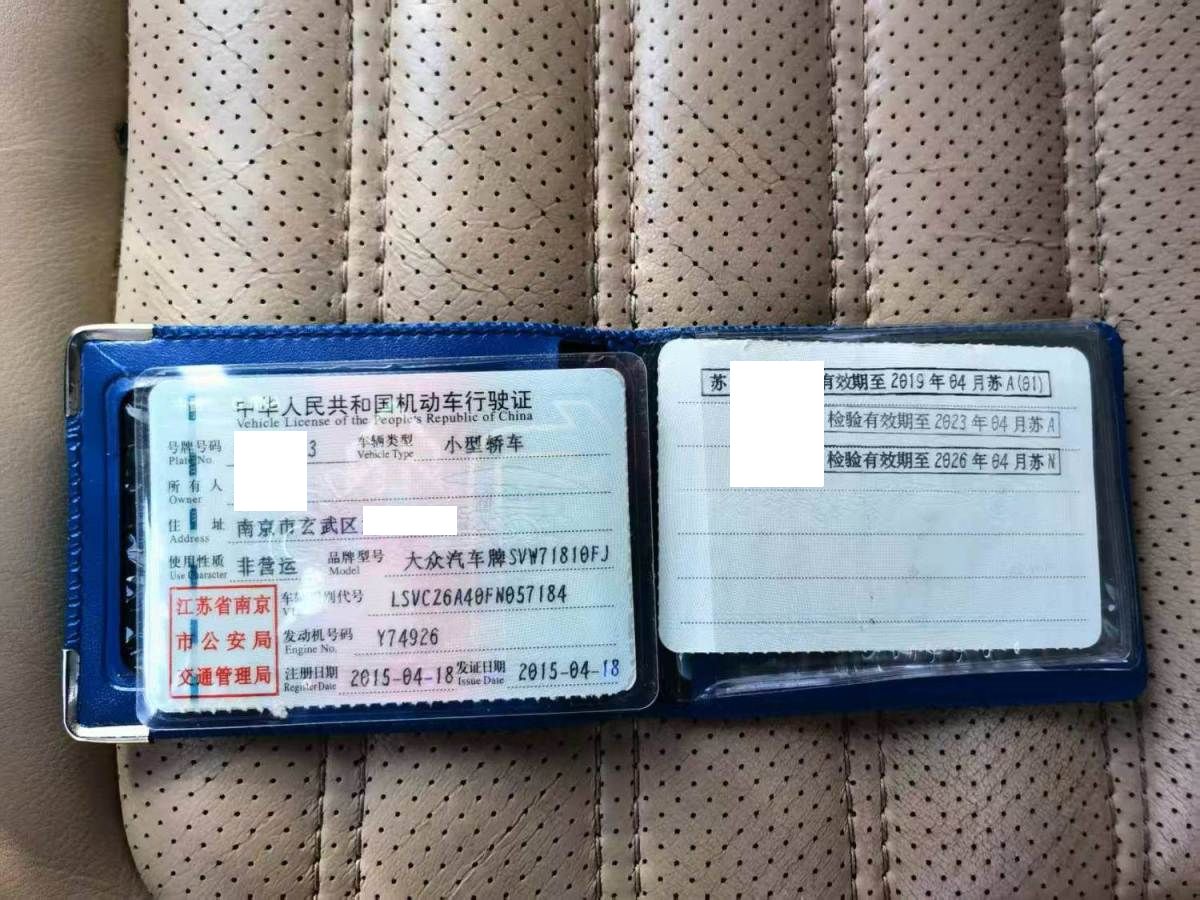 中华人民共和国机动车行驶证
Vehicle License of the People's Republic of China
号牌号码 3 车辆类型 小型轿车
Plate No. Vehicle Type
所有人
Owner
住址 南京市玄武区
Address
使用性质 非营运 品牌型号 大众汽车牌SVW71810FJ
Use Character Model
车辆识别代号 LSVC26A40FN057184
江苏省南京
市公安局
交通管理局
发动机号码 Y74926
Engine No.
注册日期 2015-04-18 发证日期 2015-04-18
Register Date Issue Date
苏 有效期至2019年04月苏A(01)
检验有效期至2023年04月苏A
检验有效期至2026年04月苏N